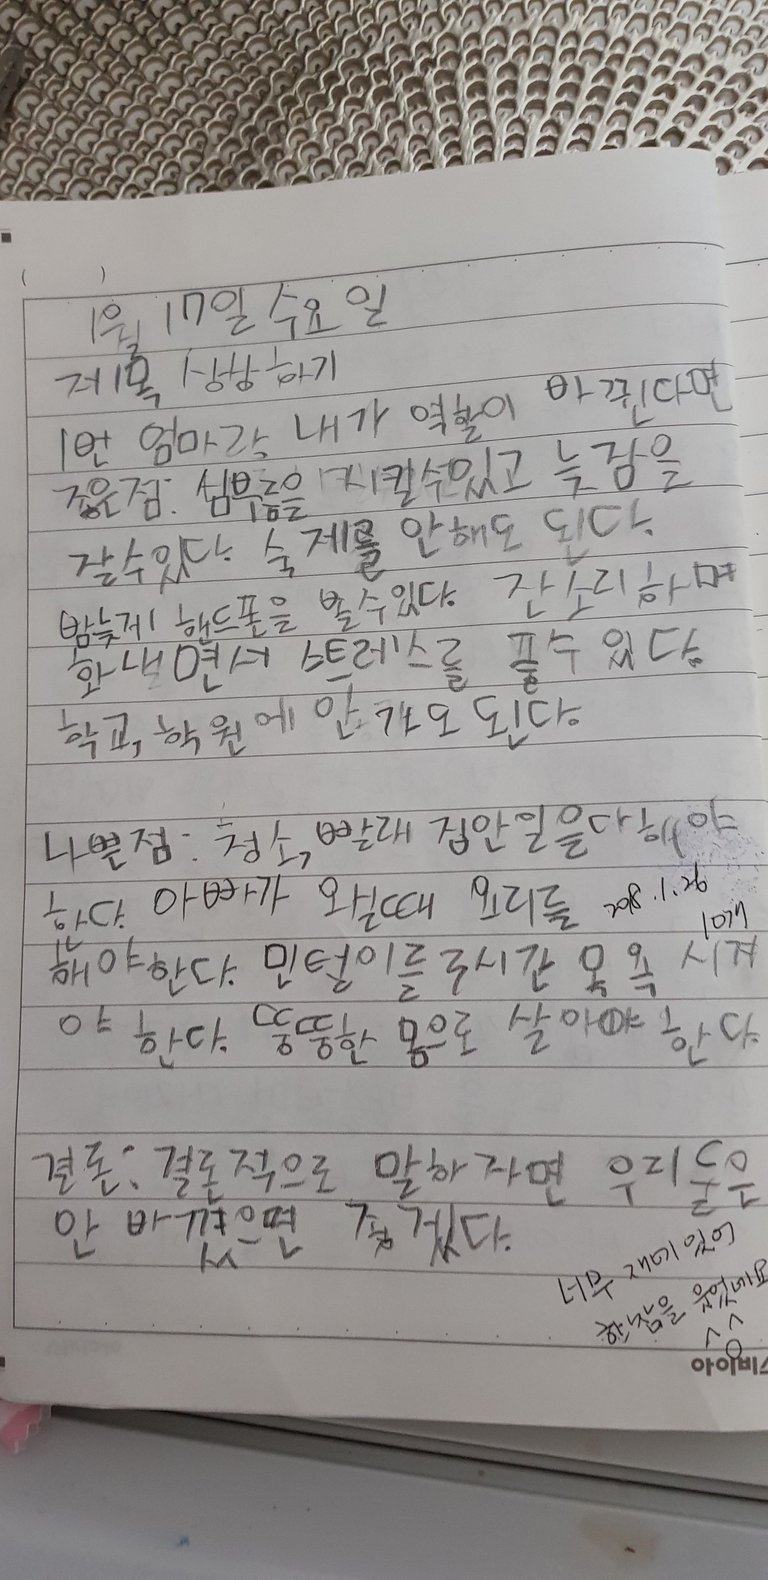 1월 17일 수요일
제목 상상하기
1번 엄마랑 내가 역할이 바뀐다면
좋은점: 심부름을 시킬수있고 늦잠을
잘수있다. 숙제를 안해도 된다.
밤늦게 핸드폰을 볼수있다. 잔소리하며
화내면서 스트레스를 풀수 있다.
학교, 학원에 안가도 된다.
나쁜점: 청소, 빨래 집안일을다해야
한다. 아빠가 오실때 요리를
해야한다. 민털이를 목욕 시켜
야 한다. 뚱뚱한 몸으로 살아야 한다.
2018.1.26
결론: 결론적으로 말하자면 우리둘은
안 바꼈으면 좋겠다.
너무 재미있어
한참을 웃었네요
^^